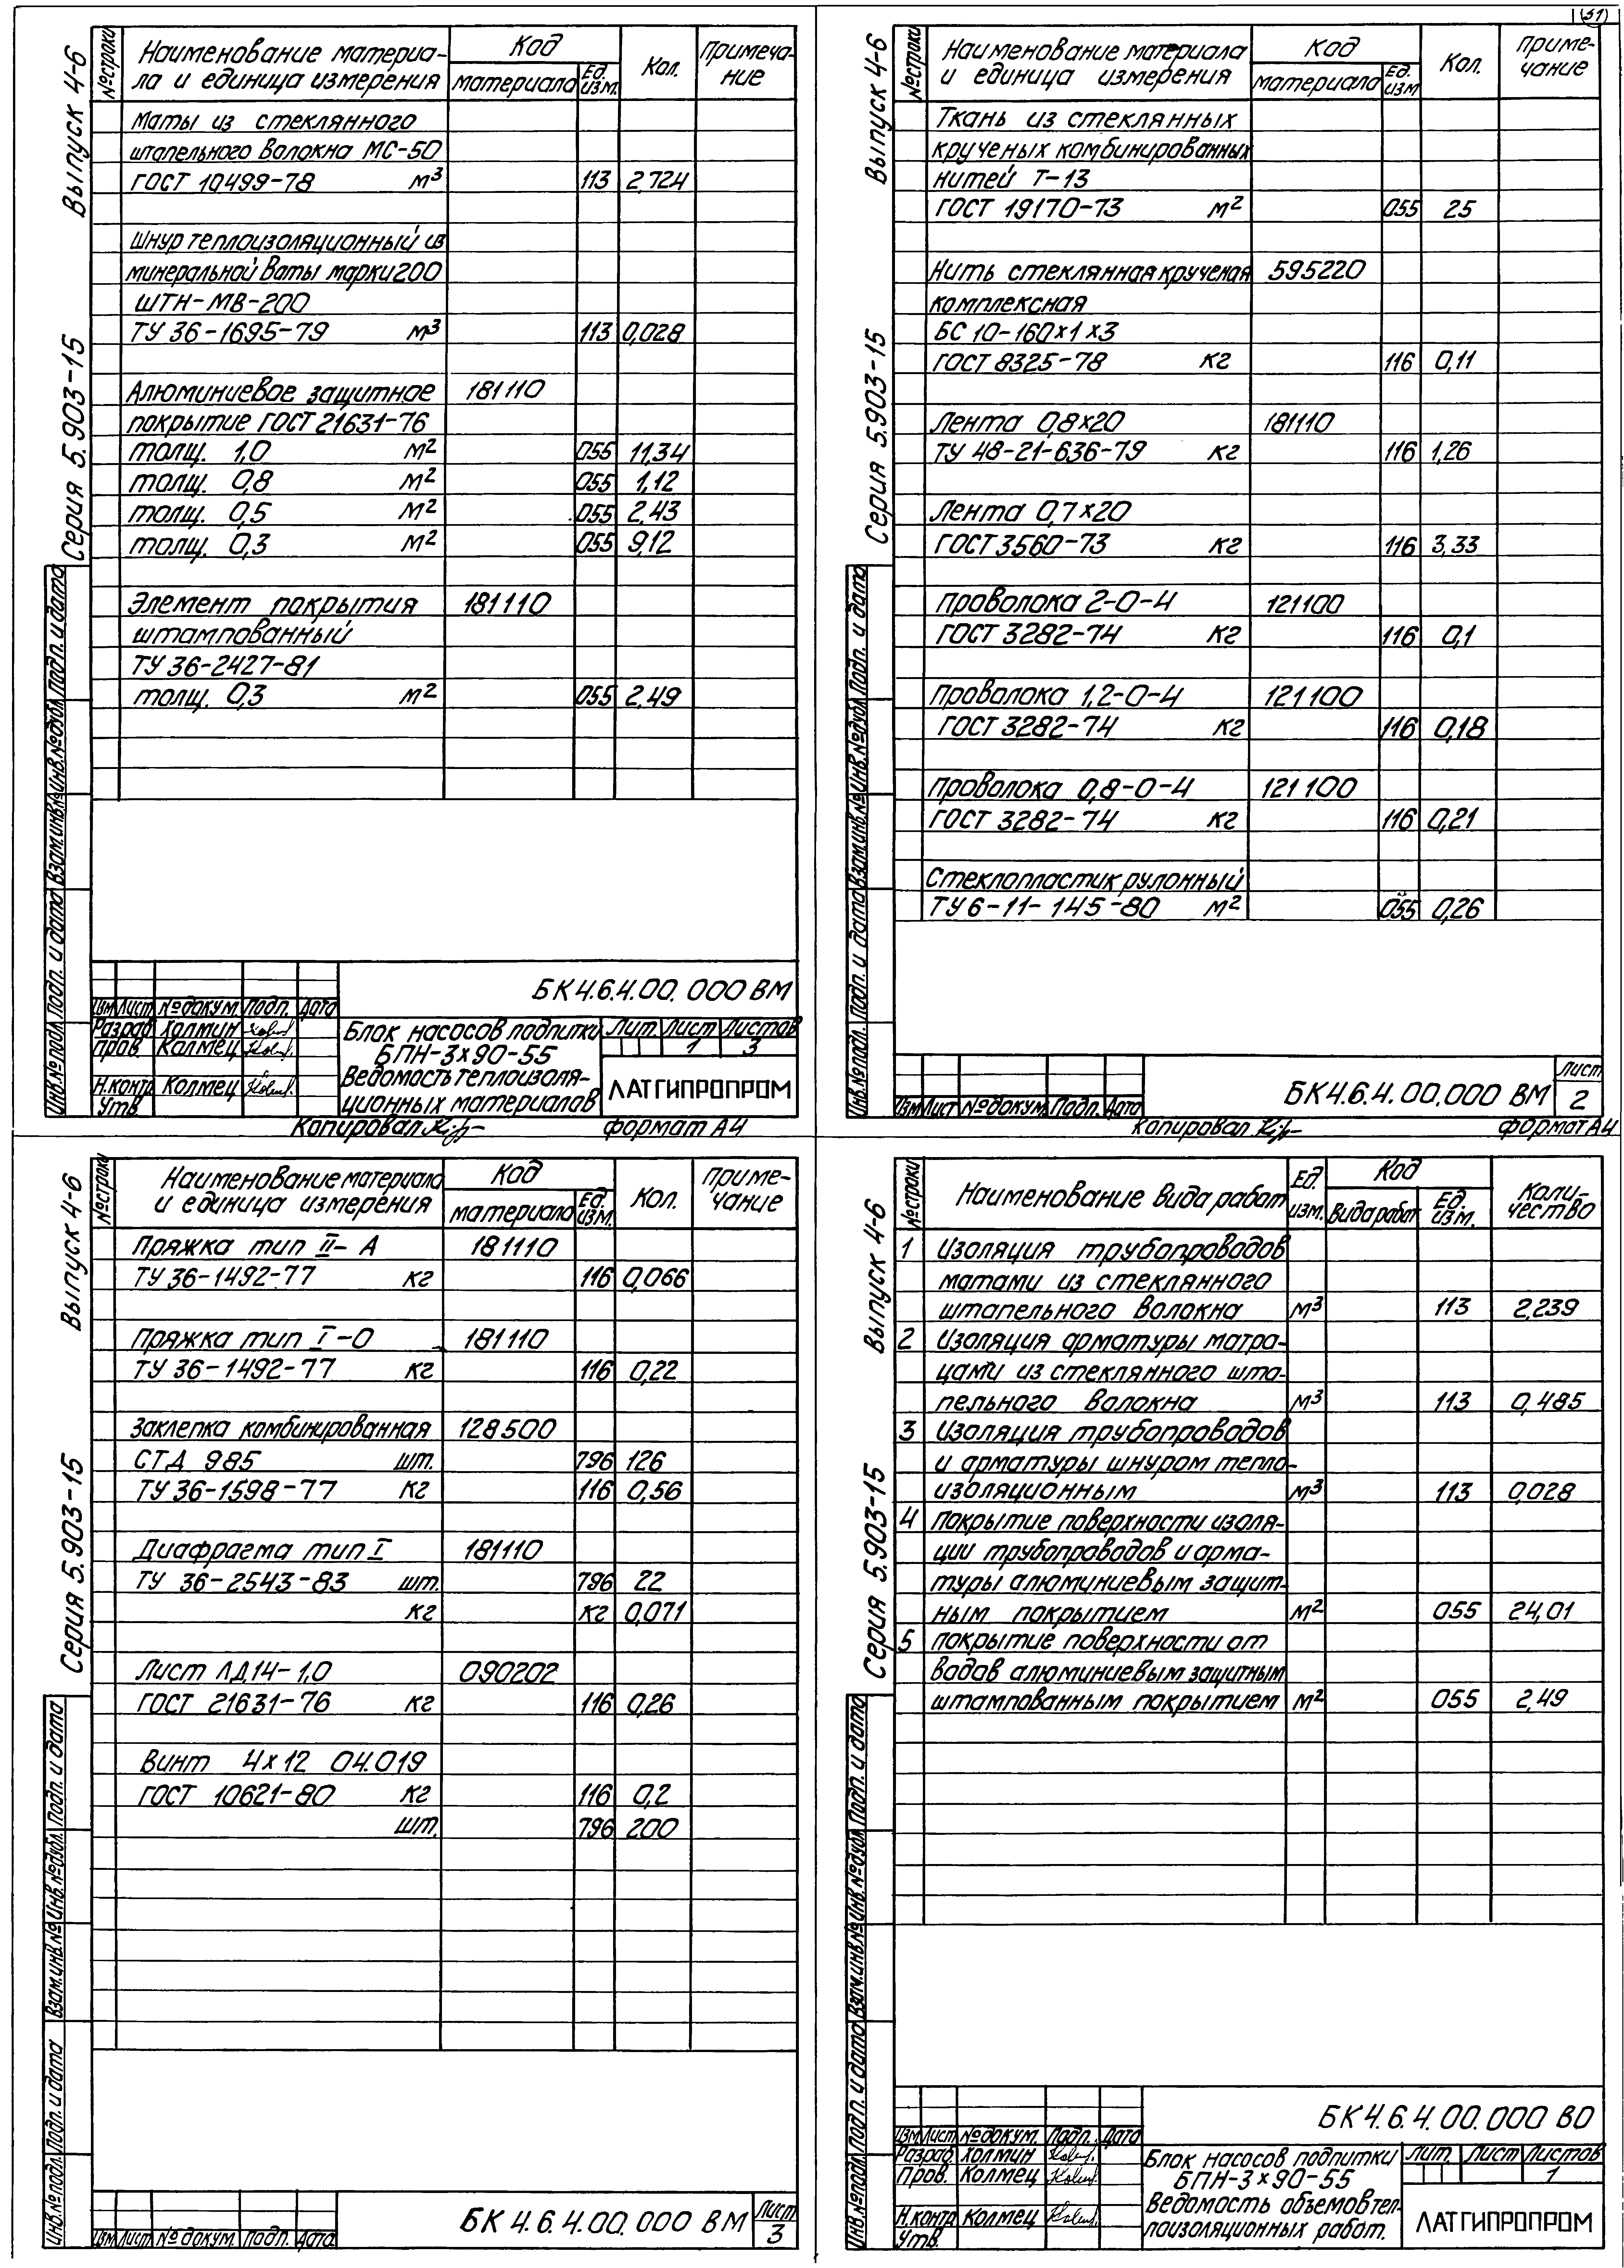 51
Выпуск 4-6
Серия 5.903-15
№ строки
Наименование материа-
ла и единица измерения
Код
материала
Ед. изм.
Кол.
Примеча-
ние
Маты из стеклянного
штапельного волокна МС-50
ГОСТ 10499-78 м³ 113 2,724
Шнур теплоизоляционный из
минеральной ваты марки 200
ШТН-МВ-200
ТУ 36-1695-79 м³ 113 0,028
Алюминиевое защитное 181110
покрытие ГОСТ 21631-76
толщ. 1,0 м² 055 11,34
толщ. 0,8 м² 055 1,12
толщ. 0,5 м² 055 2,43
толщ. 0,3 м² 055 9,12
Элемент покрытия 181110
штампованный
ТУ 36-2427-81
толщ. 0,3 м² 055 2,49
Инв.№подл. Подп. и дата Взам.инв.№ Инв.№дубл. Подп. и дата
БК4.6.4.00.000 ВМ
Изм Лист № докум. Подп. Дата
Разраб. Холмин
Пров. Колмец
Н.контр. Колмец
Утв.
Блок насосов подпитки
БПН-3×90-55
Ведомость теплоизоля-
ционных материалов
Лит. Лист Листов
1 3
ЛАТГИПРОПРОМ
Копировал формат А4
Выпуск 4-6
Серия 5.903-15
№ строки
Наименование материала
и единица измерения
Код
материала
Ед. изм
Кол.
Приме-
чание
Ткань из стеклянных
крученых комбинированных
нитей Т-13
ГОСТ 19170-73 м² 055 25
Нить стеклянная крученая 595220
комплексная
БС 10-160×1×3
ГОСТ 8325-78 кг 116 0,11
Лента 0,8×20 181110
ТУ 48-21-636-79 кг 116 1,26
Лента 0,7×20
ГОСТ 3560-73 кг 116 3,33
Проволока 2-0-4 121100
ГОСТ 3282-74 кг 116 0,1
Проволока 1,2-0-4 121100
ГОСТ 3282-74 кг 116 0,18
Проволока 0,8-0-4 121100
ГОСТ 3282-74 кг 116 0,21
Стеклопластик рулонный
ТУ 6-11-145-80 м² 055 0,26
Инв.№подл. Подп. и дата Взам.инв.№ Инв.№дубл. Подп. и дата
Изм Лист № докум. Подп. Дата
БК4.6.4.00.000 ВМ
Лист
2
Копировал формат А4
Выпуск 4-6
Серия 5.903-15
№ строки
Наименование материала
и единица измерения
Код
материала
Ед. изм.
Кол.
Приме-
чание
Пряжка тип II-А 181110
ТУ 36-1492-77 кг 116 0,066
Пряжка тип I-О 181110
ТУ 36-1492-77 кг 116 0,22
Заклепка комбинированная 128500
СТД 985 шт. 796 126
ТУ 36-1598-77 кг 116 0,56
Диафрагма тип I 181110
ТУ 36-2543-83 шт. 796 22
кг кг 0,071
Лист АД.14-1,0 090202
ГОСТ 21631-76 кг 116 0,26
Винт 4×12 04.019
ГОСТ 10621-80 кг 116 0,2
шт. 796 200
Инв.№подл. Подп. и дата Взам.инв.№ Инв.№дубл. Подп. и дата
Изм Лист № докум. Подп. Дата
БК 4.6.4.00.000 ВМ
Лист
3
Выпуск 4-6
Серия 5.903-15
№ строки
Наименование вида работ
Ед. изм.
Код
вида работ
Ед. изм.
Коли-
чество
1 Изоляция трубопроводов
матами из стеклянного
штапельного волокна м³ 113 2,239
2 Изоляция арматуры матра-
цами из стеклянного шта-
пельного волокна м³ 113 0,485
3 Изоляция трубопроводов
и арматуры шнуром тепло-
изоляционным м³ 113 0,028
4 Покрытие поверхности изоля-
ции трубопроводов и арма-
туры алюминиевым защит-
ным покрытием м² 055 24,01
5 Покрытие поверхности от
водов алюминиевым защитным
штампованным покрытием м² 055 2,49
Инв.№подл. Подп. и дата Взам.инв.№ Инв.№дубл. Подп. и дата
БК4.6.4.00.000 ВО
Изм Лист № докум. Подп. Дата
Разраб. Холмин
Пров. Колмец
Н.контр. Колмец
Утв.
Блок насосов подпитки
БПН-3×90-55
Ведомость объемов теп-
лоизоляционных работ.
Лит. Лист Листов
1
ЛАТГИПРОПРОМ